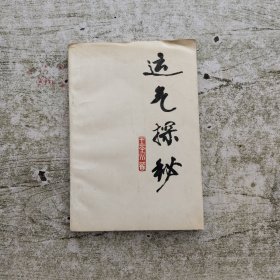 运气探秘